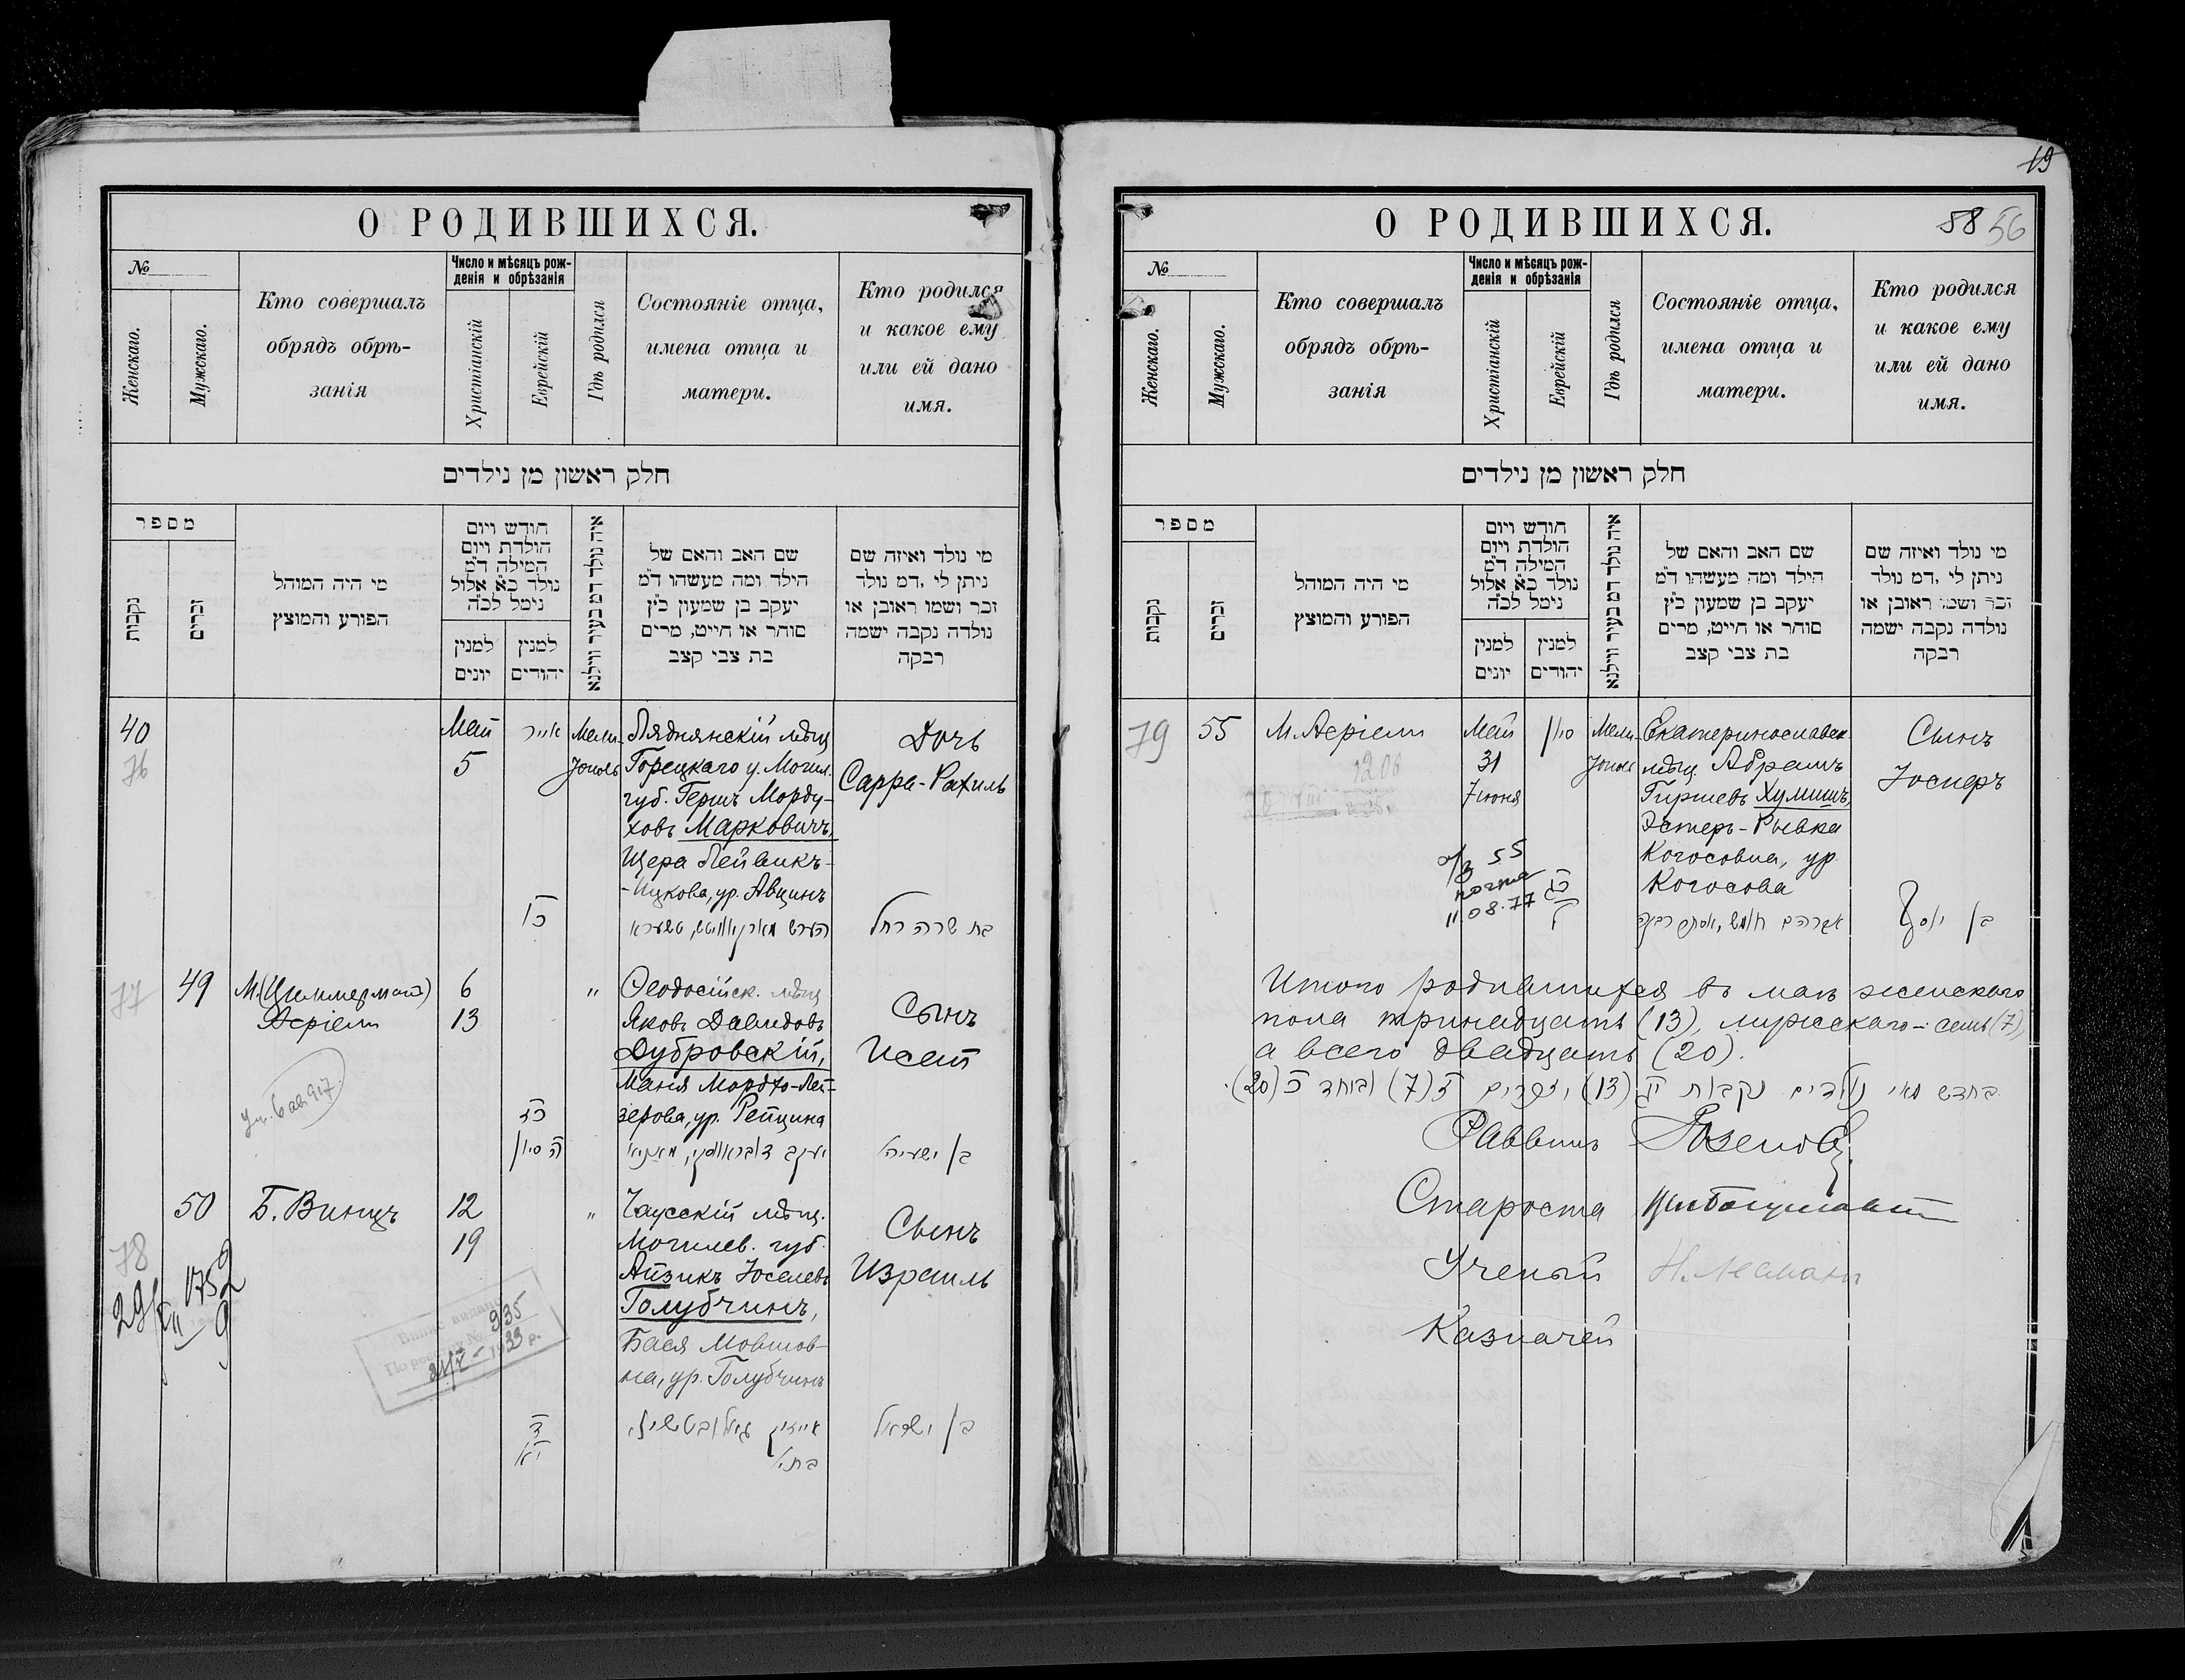 О РОДИВШИХСЯ.
№
Женскаго.
Мужскаго.
Кто совершалъ
обрядъ обрѣ-
занія
Число и мѣсяцъ рож-
денія и обрѣзанія
Христіанскій
Еврейскій
Гдѣ родился
Состояніе отца,
имена отца и
матери.
Кто родился
и какое ему
или ей дано
имя.
חלק ראשון מן נילדים
מספר
נקבות
זכרים
מי היה המוהל
הפורע והמוצץ
חודש ויום
הולדת ויום
המילה ד״מ
נולד כ״א אלול
נימל לכ״ה
למנין
יונים
למנין
יהודים
איה נולד דמ בעיר ווילנא
שם האב והאם של
הילד ומה מעשהו ד״מ
יעקב בן שמעון כ״ץ
סוחר או חייט, מרים
בת צבי קצב
מי נולד ואיזה שם
ניתן לי ,דמ נולד
זכר ושמו ראובן או
נולדה נקבה ישמה
רבקה
40
76
Май
5
אייר
כו
Мели-
тополь
Ляднянскій мѣщ
Горецкаго у. Могил.
губ. Гершъ Морду-
ховъ Марковичъ,
Щера Лейвикъ-
-Ицкова, ур. Авцинъ
הערש מארקאוויטש, טשערא
Дочь
Сарра-Рахиль
בת שרה רחל
77
49
М. (Циммерман)
Аспріели
6
13
כז
ה סיון
"
Ѳеодосійск. мѣщ
Яковъ Давидовъ
Дубровскій,
Маня Мордхо-Лей-
зерова, ур. Репцина
יעקב דובראווסקי, מאניא
Сынъ
Исай
בן ישעיה
78
50
Б. Винцъ
12
19
ד
יא
"
Чаусскій мѣщ.
Могилев. губ.
Айзикъ Іоселевъ
Голубчинъ,
Бася Мовшов-
на, ур. Голубчинъ
אייזיק גאלובטשין,
Сынъ
Израиль
בן ישראל
1752
935
1933 р.
19
О РОДИВШИХСЯ.
58 56
№
Женскаго.
Мужскаго.
Кто совершалъ
обрядъ обрѣ-
занія
Число и мѣсяцъ рож-
денія и обрѣзанія
Христіанскій
Еврейскій
Гдѣ родился
Состояніе отца,
имена отца и
матери.
Кто родился
и какое ему
или ей дано
имя.
חלק ראשון מן נילדים
מספר
נקבות
זכרים
מי היה המוהל
הפורע והמוצץ
חודש ויום
הולדת ויום
המילה ד״מ
נולד כ״א אלול
נימל לכ״ה
למנין
יונים
למנין
יהודים
איה נולד דמ בעיר ווילנא
שם האב והאם של
הילד ומה מעשהו ד״מ
יעקב בן שמעון כ״ץ
סוחר או חייט, מרים
בת צבי קצב
מי נולד ואיזה שם
ניתן לי ,דמ נולד
זכר ושמו ראובן או
נולדה נקבה ישמה
רבקה
79
55
М. Аспріели
1208
Май
31
7 іюня
סיון
כג
ל
Мели-
тополь
Екатеринославск.
мѣщ. Абрамъ
Гиршевъ Хумишъ,
Эстеръ-Рывка
Когосовна, ур.
Когосова
אברהם חומש, אסתר רבקה
Сынъ
Іосифъ
בן יוסף
55
почта
11.08.77
Итого родившихся въ маѣ женскаго
пола тринадцать (13), мужскаго - семь (7),
а всего двадцать (20).
בחדש מאי נולדים נקבות יג (13) זכרים ז (7) וביחד כ (20).
Раввинъ
Староста
Ученый
Казначей